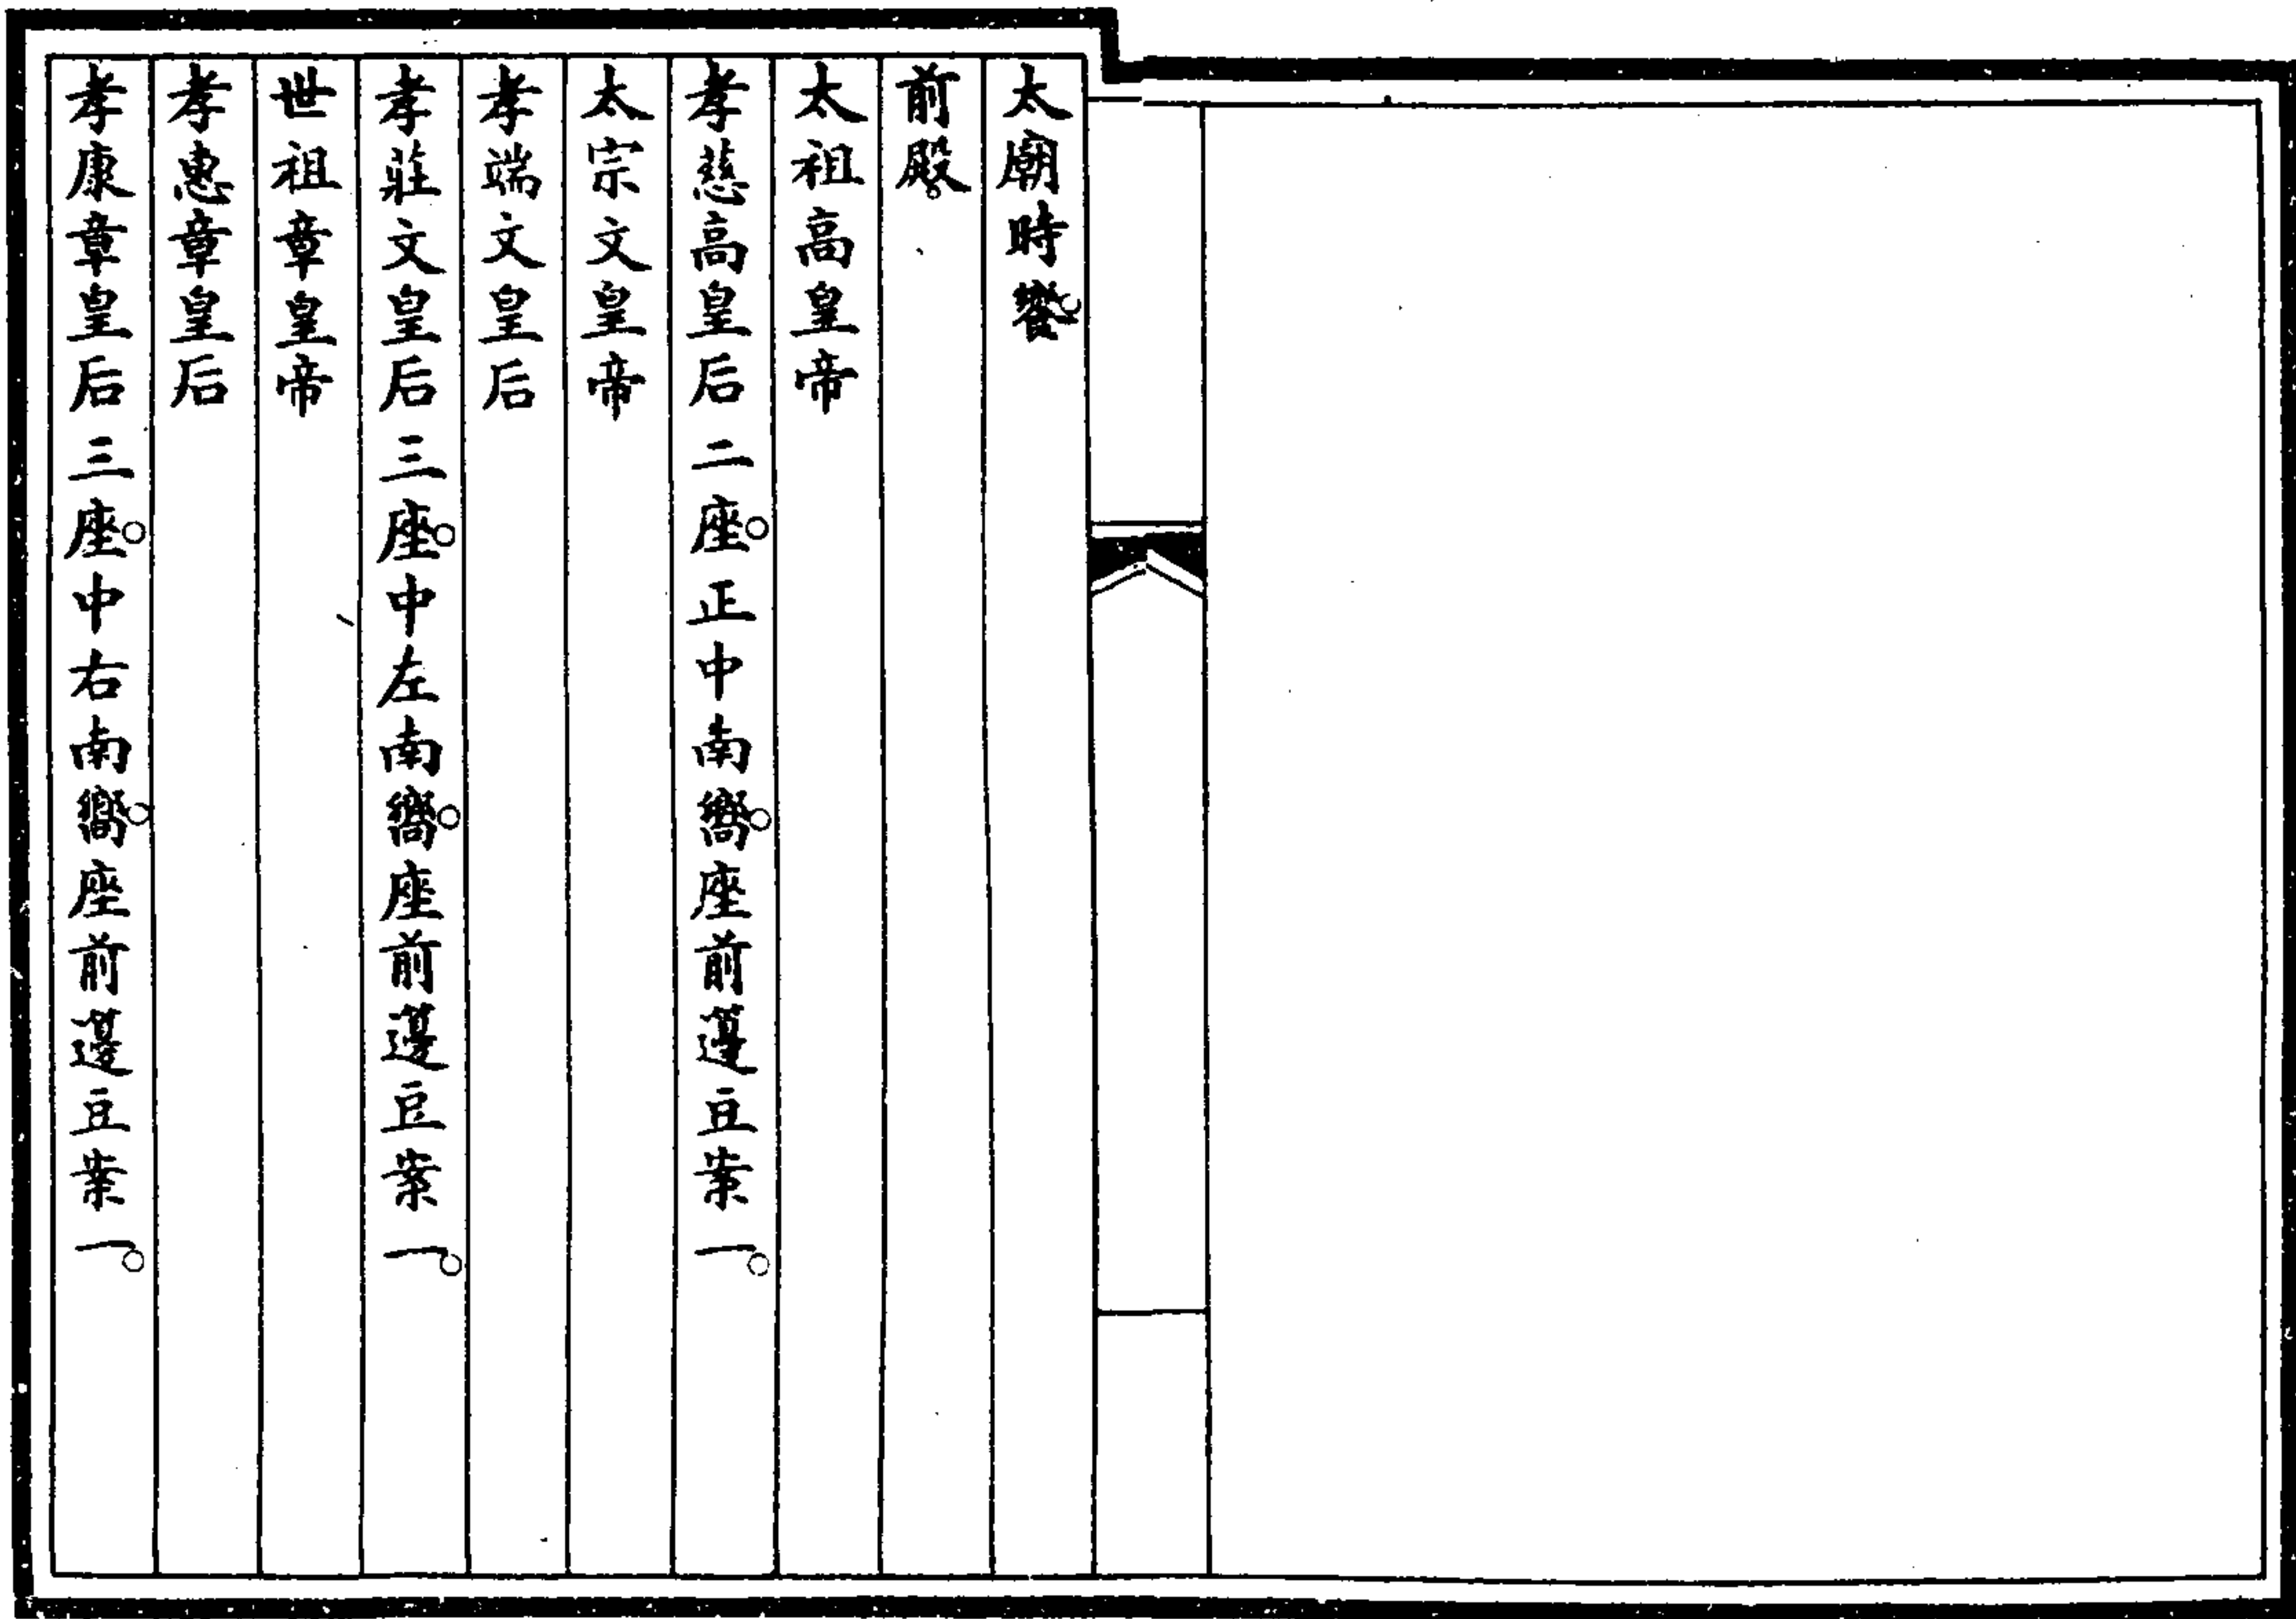 太廟時饗。
前殿。
太祖高皇帝
孝慈高皇后二座。正中南嚮。座前籩豆案一。
太宗文皇帝
孝端文皇后
孝莊文皇后三座。中左南嚮。座前籩豆案一。
世祖章皇帝
孝惠章皇后
孝康章皇后三座。中右南嚮。座前籩豆案一。